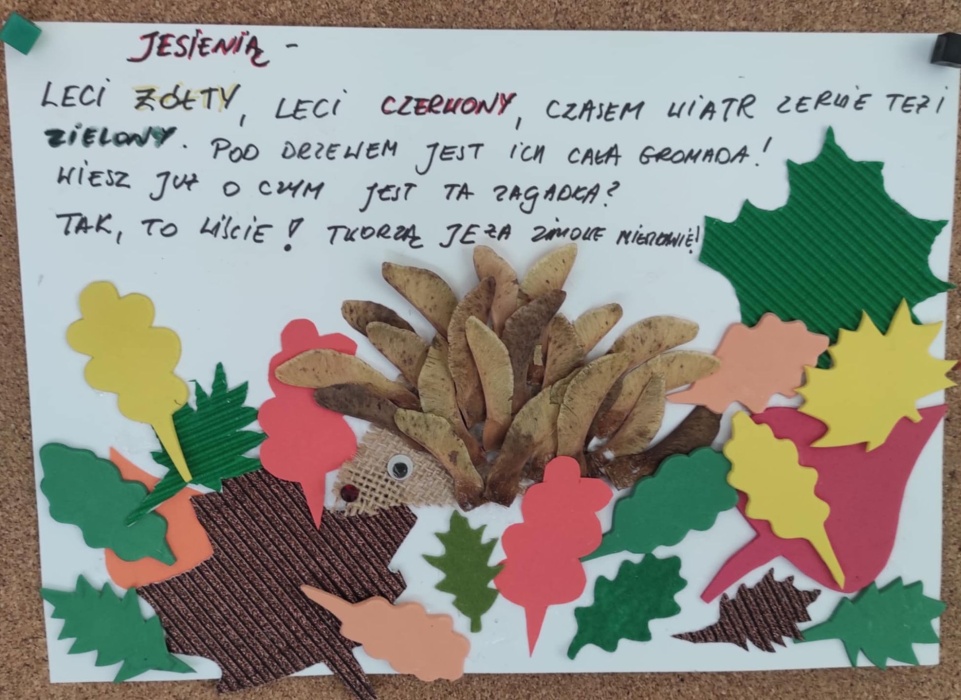 JESIENIĄ -
LECI ŻÓŁTY, LECI CZERWONY, CZASEM WIATR ZERWIE TEŻ I
ZIELONY. POD DRZEWEM JEST ICH CAŁA GROMADA!
WIESZ JUŻ O CZYM JEST TA ZAGADKA?
TAK, TO LIŚCIE! TWORZĄ JEŻA ZIMOWE